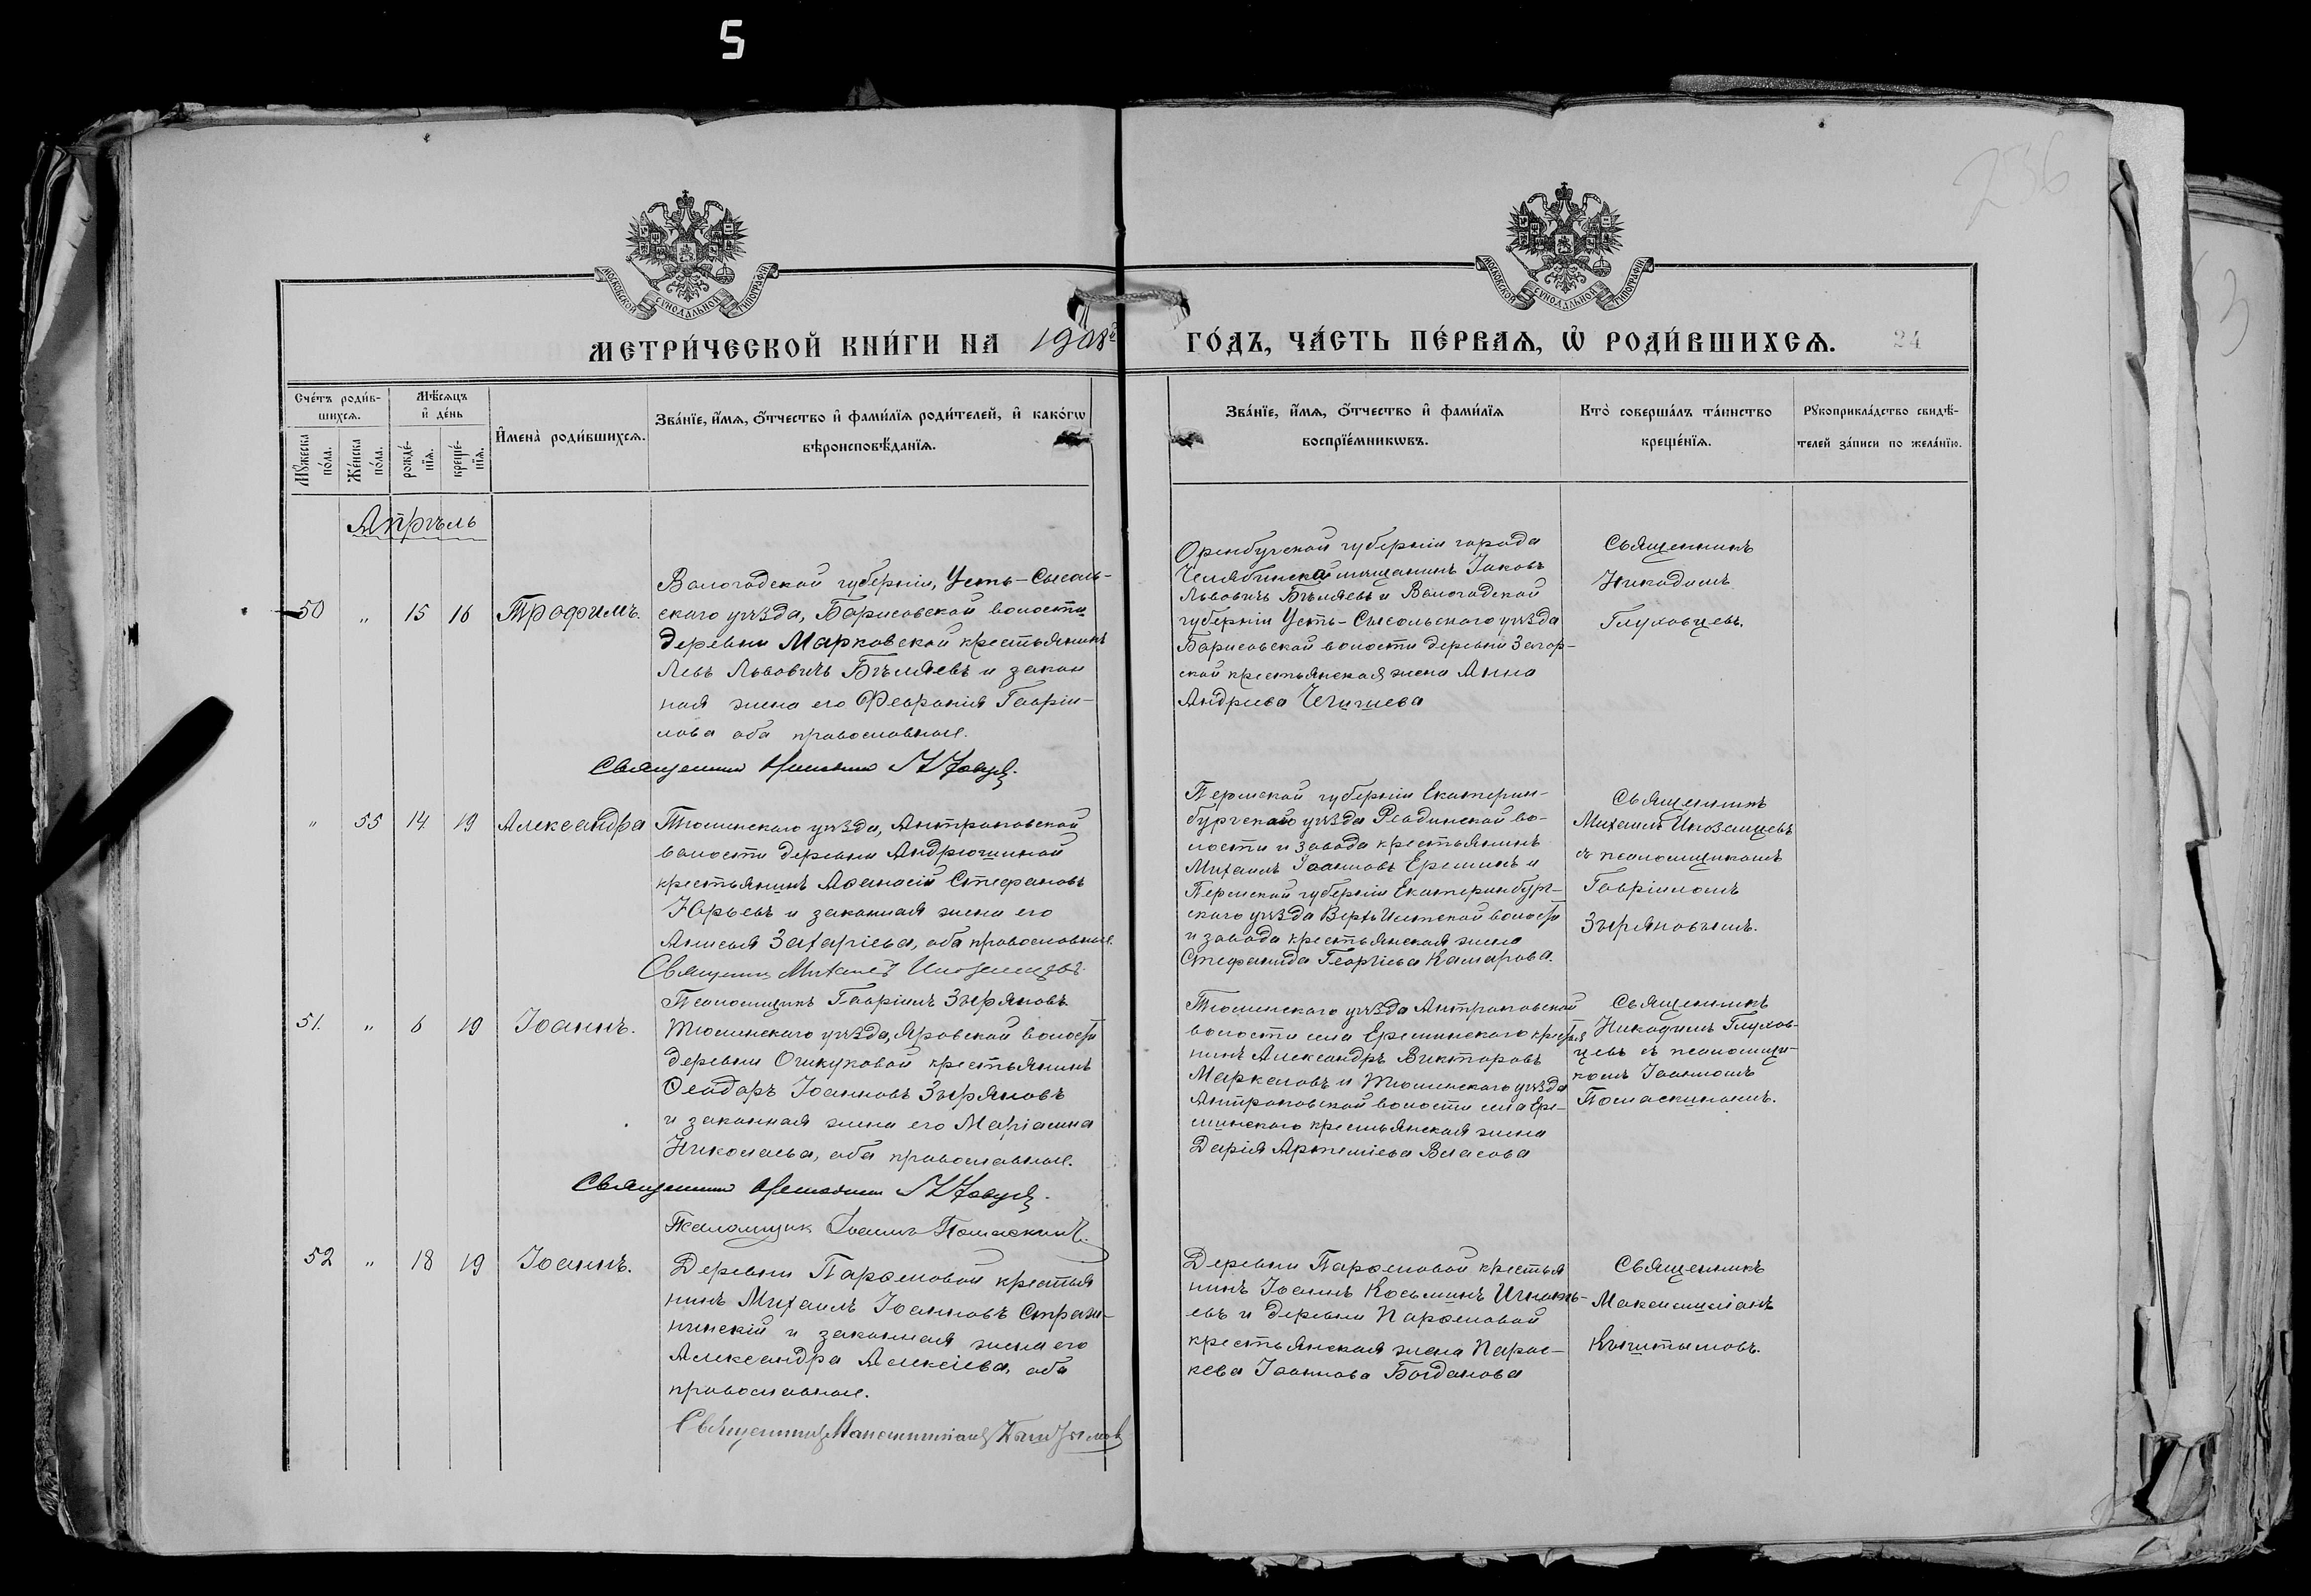 5
236
МОСКОВСКОЙ СѴНОДАЛЬНОЙ ТИПОГРАФІИ
МОСКОВСКОЙ СѴНОДАЛЬНОЙ ТИПОГРАФІИ
МЕТРИ́ЧЕСКОЙ КНИ́ГИ НА 1908й
ГО́ДЪ, ЧА́СТЬ ПЕ́РВАѦ, Ѡ҆ РОДИ́ВШИХСѦ. 24
Сче́тъ роди́в-
шихсѧ.
Мꙋ́жеска по́ла.
Же́нска по́ла.
Мѣ́сѧцъ и҆ де́нь
рожде́-нїѧ.
креще́-нїѧ.
И҆мена̀ роди́вшихсѧ.
Зва́нїе, и҆́мѧ, ѻ҆́тчество и҆ фами́лїѧ роди́телей, и҆ како́гѡ
вѣроисповѣ́данїѧ.
Зва́нїе, и҆́мѧ, ѻ҆́тчество и҆ фами́лїѧ
воспрїе́мникѡвъ.
Кто̀ соверша́лъ та́инство
креще́нїѧ.
Рꙋкоприкла́дство свидѣ́-
телей за́писи по жела́нїю.
Апрѣль
50 " 15 16 Трофимъ.
Вологодской губерніи, Усть-Сысоль-
скаго уѣзда, Борисовской волости
деревни Марковской крестьянинъ
Левъ Львовичъ Бѣляевъ и закон
ная жена его Феофанія Гаврiи-
лова оба православные.
Священникъ
Оренбургской губерніи города
Челябинска мѣщанинъ Іаковъ
Львовичъ Бѣляевъ и Вологодской
губерніи Усть-Сысольскаго уѣзда
Борисовской волости деревни Загор-
ской крестьянская жена Анна
Андреева
Священникъ
Никодимъ
Глуховцевъ.
" 55 14 19 Александра
Тюменскаго уѣзда, Антроповской
волости деревни Андрюшиной
крестьянинъ Аѳанасій Стефановъ
Юрьевъ и законная жена его
Анисья Захаріева, оба православные.
Священникъ Михаилъ Иноземцевъ.
Псаломщикъ Гавріилъ Зыряновъ
Пермской губерніи Екатерин-
бургскаго уѣзда Ревдинской во-
лости и завода крестьянинъ
Михаилъ Іоанновъ Ереминъ и
Пермской губерніи Екатеринбург-
скаго уѣзда Верхъ Исетской волости
и завода крестьянская жена
Стефанида Георгіева Камарова.
Священникъ
Михаилъ Иноземцевъ
съ псаломщикомъ
Гавріиломъ
Зыряновымъ.
51. " 6 19 Іоаннъ.
Тюменскаго уѣзда, Яровской волости
деревни Ошкуковой крестьянинъ
Ѳеодоръ Іоанновъ Зыряновъ
и законная жена его Маріамна
Николаева, оба православные.
Священникъ
Псаломщик Іоаннъ Помаскинъ.
Тюменскаго уѣзда Антроповской
волости села Ереминскаго крестья
нинъ Александръ Викторовъ
Маркеловъ и Тюменскаго уѣзда
Антроповской волости села Ере-
минскаго крестьянская жена
Дарія Артеміева Власова
Священникъ
Никодимъ Глухов-
цевъ съ псаломщи-
комъ Іоанномъ
Помаскинымъ.
52 " 18 19 Іоаннъ.
Деревни Парѳеновой крестья
нинъ Михаилъ Іоанновъ
и законная жена его
Александра Алексіева, оба
православные.
Священникъ Максимиліанъ Кыштымов
Деревни Парѳеновой крестья
нинъ Іоаннъ Косьминъ Игнать-
евъ и деревни Парѳеновой
крестьянская жена Парас-
кева Іоаннова Богданова
Священникъ
Максимиліанъ
Кыштымовъ.